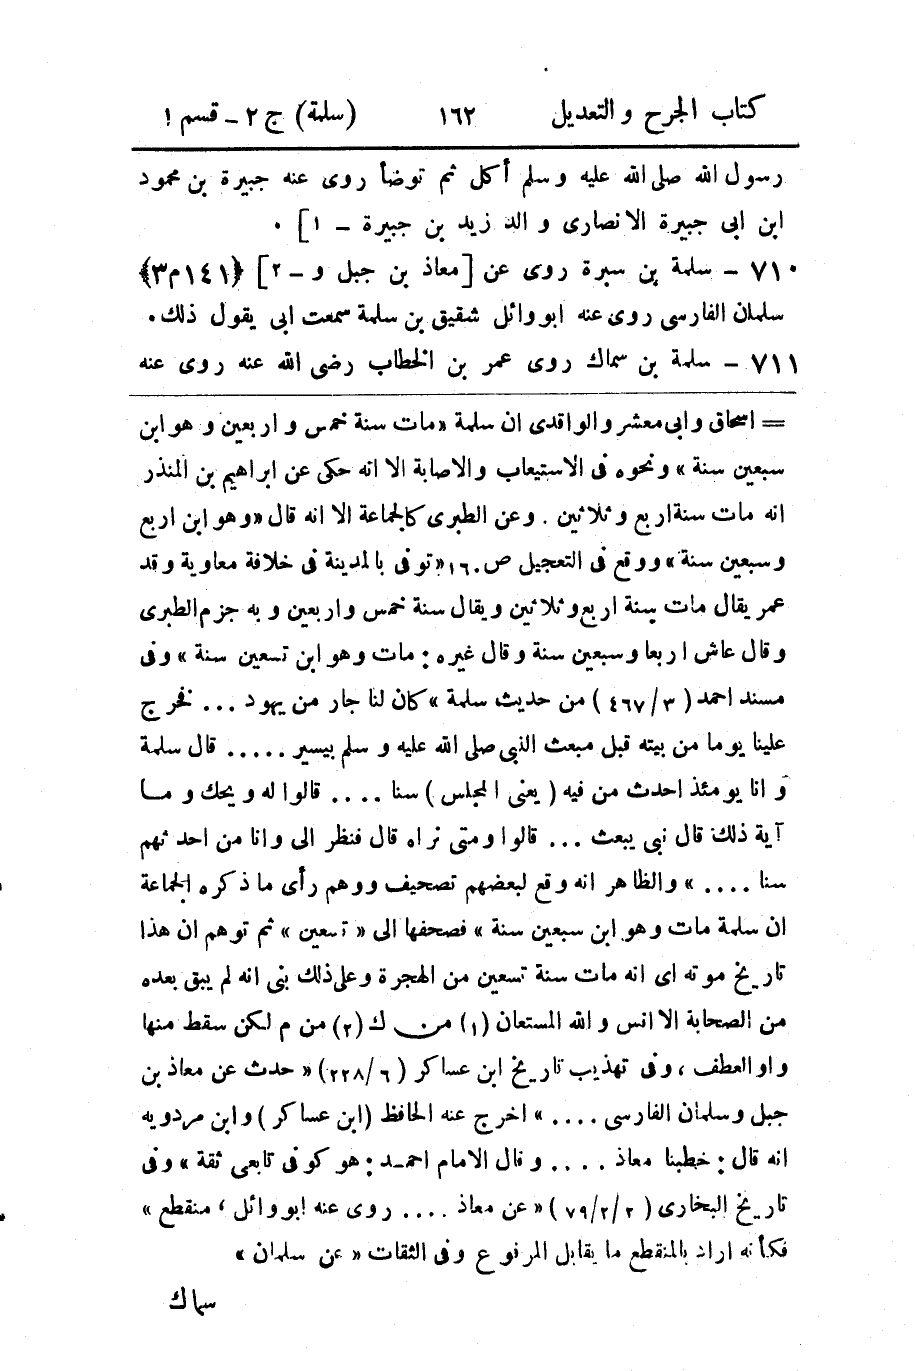 كتاب الجرح والتعديل ١٦٢ (سلمة) ج ٢ - قسم ١
رسول الله صلى الله عليه وسلم أكل ثم توضأ روى عنه جبيرة بن محمود
ابن ابى جبيرة الانصارى والد زيد بن جبيرة - ١] .
٧١٠ - سلمة بن سبرة روى عن [معاذ بن جبل و - ٢] ﴿١٤١م٣﴾
سلمان الفارسى روى عنه ابو وائل شقيق بن سلمة سمعت ابى يقول ذلك.
٧١١ - سلمة بن سماك روى عمر بن الخطاب رضى الله عنه روى عنه
= اسحاق وابى معشر والواقدى ان سلمة «مات سنة خمس واربعين وهو ابن
سبعين سنة» ونحوه فى الاستيعاب والاصابة الا انه حكى عن ابراهيم بن المنذر
انه مات سنة اربع وثلاثين . وعن الطبرى كالجماعة الا انه قال «وهو ابن اربع
وسبعين سنة» ووقع فى التعجيل ص ١٦٠ «توفى بالمدينة فى خلافة معاوية وقد
عمر يقال مات سنة اربع وثلاثين ويقال سنة خمس واربعين وبه جزم الطبرى
وقال عاش اربعا وسبعين سنة وقال غيره : مات وهو ابن تسعين سنة» وفى
مسند احمد (٣/ ٤٦٧) من حديث سلمة «كان لنا جار من يهود ... فخرج
علينا يوما من بيته قبل مبعث النبى صلى الله عليه وسلم بيسير ..... قال سلمة
وانا يومئذ احدث من فيه (يعنى المجلس) سنا .... قالوا له ويحك وما
آية ذلك قال نبى يبعث ... قالوا ومتى نراه قال فنظر الى وانا من احدثهم
سنا ....» والظاهر انه وقع لبعضهم تصحيف ووهم رأى ما ذكره الجماعة
ان سلمة مات وهو ابن سبعين سنة» فصحفها الى «تسعين» ثم توهم ان هذا
تاريخ موته اى انه مات سنة تسعين من الهجرة وعلى ذلك بنى انه لم يبق بعده
من الصحابة الا انس والله المستعان (١) من ك (٢) من م لكن سقط منها
واو العطف ، وفى تهذيب تاريخ ابن عساكر (٦/ ٢٢٨) «حدث عن معاذ بن
جبل وسلمان الفارسى ....» اخرج عنه الحافظ (ابن عساكر) وابن مردويه
انه قال : خطبنا معاذ .... وقال الامام احمد : هو كوفى تابعى ثقة» وفى
تاريخ البخارى (٢/٢/ ٧٩) «عن معاذ .... روى عنه ابو وائل ، منقطع»
فكأنه اراد بالمنقطع ما يقابل المرفوع وفى الثقات «عن سلمان»
سماك